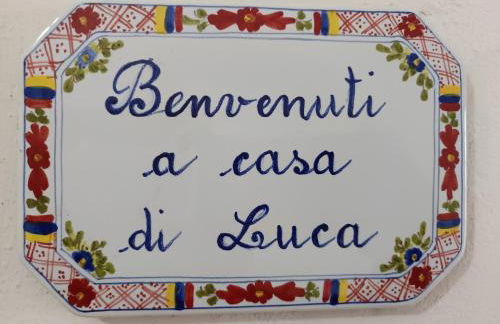 Benvenuti
a casa
di Luca